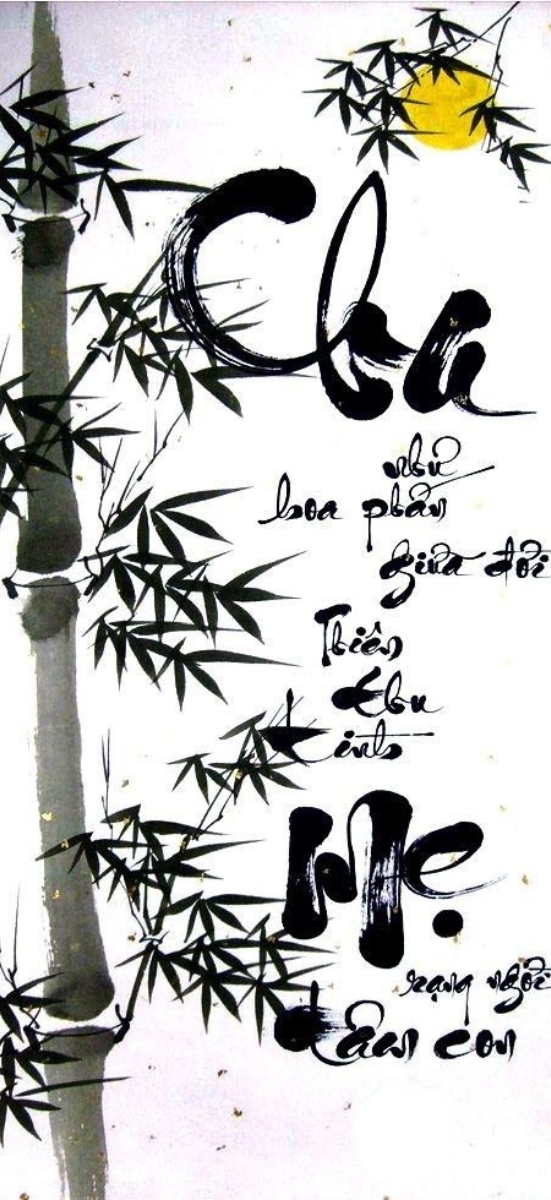 Cha
như
hoa phấn
giữa đời
Thiên
thu
tình
Mẹ
rạng ngời
tâm con